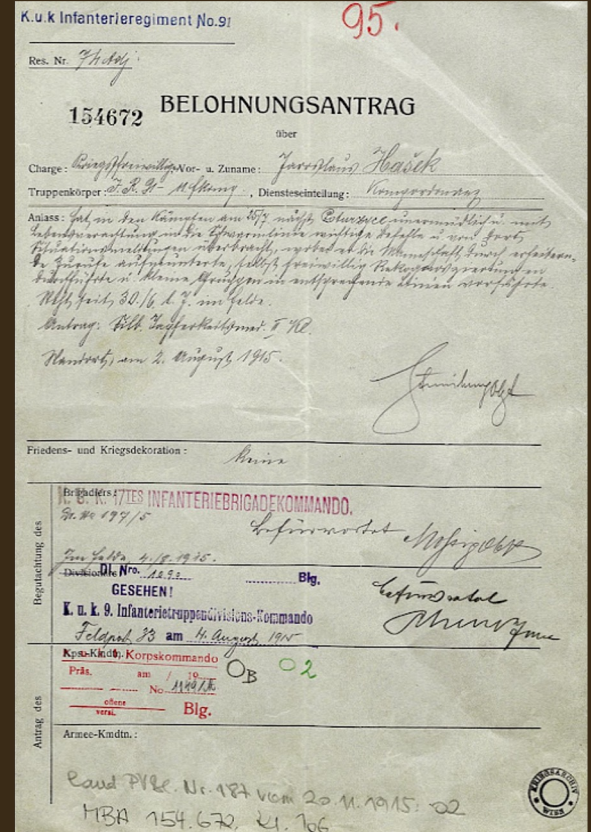 K.u.k Infanterieregiment No.91
95.
Res. Nr.
154672 BELOHNUNGSANTRAG
über
Charge: Kriegsfreiwilliger Vor- u. Zuname: Jarosslaus Hašek
Truppenkörper: I. R. 91 , Diensteseinteilung: Kompordonanz
Anlass: Hat in den Kämpfen am 25/7 nächst unermüdlich u. mit
Lebensverachtung in die Schwarmlinie wichtige Befehle u. von dort
Situationsmeldungen überbracht, wobei er die Mannschaft durch
Zurufe aufmunterte, selbst freiwillig
durchführte u. kleine Gruppen in entsprechende Linien vorführte.
seit 30./6. d. J. im Felde.
Antrag: Silb. Tapferkeitsmed. II Kl.
Standort, am 2. August 1915.
Friedens- und Kriegsdekoration: keine
Begutachtung des
Brigadiers:
K. u. k. 17TES INFANTERIEBRIGADEKOMMANDO.
197/5
befürwortet
Im Felde, 4./8. 1915.
Divisionärs
DI. Nro. Blg.
GESEHEN!
befürwortet
K. u. k. 9. Infanterietruppendivisions-Kommando
Feldpost 33 am 4. August 1915
Antrag des
Kps-Kmdtn.:
Korpskommando
Präs. am / 19
No
offene
versl. Blg.
OB
O2
Armee-Kmdtn.:
laud PVBl. Nr. 187 vom 20.11.1915.
MBA 154.672, Kt. 106
KRIEGSARCHIV
WIEN